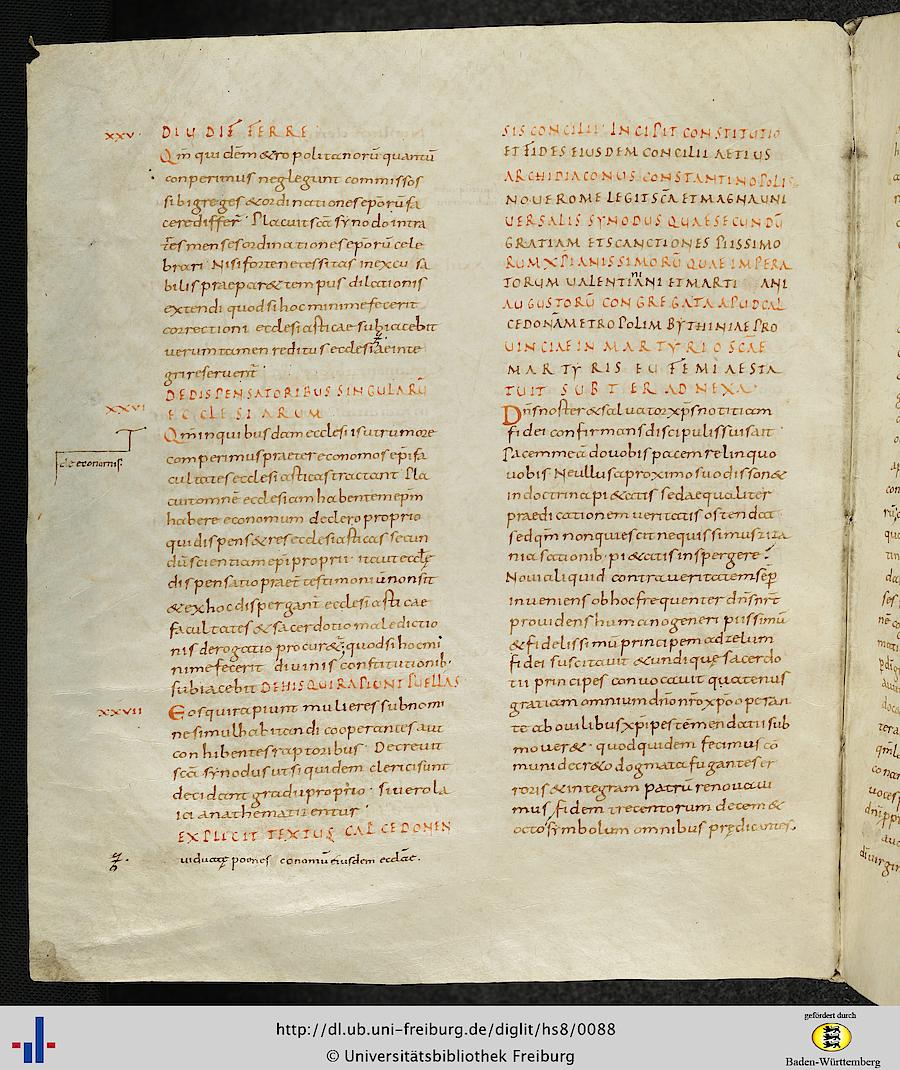 XXV. DIU DIFFERRE.
Qm̄ qui dēm &ropolitanorū quantū
conperimus neglegunt commissos
sibi greges &ordinationes eporū fa
cere differr̄. Placuit scā synodo intra
tres menses ordinationes eporū cele
brari. Nisi forte necessitas inexcusa
bilis praepar& tempus dilationis
extendi quod si hoc minime fecerit
correctioni ecclesiasticae subiacebit
uerumtamen reditus ecclesiae inte
gri reseruent̄.
DE DISPENSATORIBUS SINGULARŪ
XXVI ECCLESIARUM
Qm̄ in quibusdam ecclesiis ut rumore
comperimus praeter economos epi fa
cultates ecclesiasticas tractant. Pla
de economis.
cuit omnē ecclesiam habentem epm̄
habere economum declero proprio
qui dispens& res ecclesiasticas secun
dū scientiam epi proprii. ita ut ecclę
dispensatio praet̄ testimoniū non sit
&ex hoc dispergant̄ ecclesiasticae
facultates & sacerdotio maledictio
nis derogatio procur&; quod si hoc mi
nime fecerit divinis constitutionib.
subiacebit DE HIS QUI RAPIUNT PUELLAS
XXVII Eos qui rapiunt mulieres sub nomi
ne simul habitandi cooperantes aut
conhibentes raptoribus. Decreuit
scā synodus ut si quidem clerici sunt
decidant gradu proprio. si uero la
ici anathematizentur.
EXPLICIT TEXTUS CALCEDONEN
uiduatę poenes economū eiusdem ecclae.
SIS CONCILII. INCIPIT CONSTITUTIO
ET FIDES EIUSDEM CONCILII AETIUS
ARCHIDIACONUS CONSTANTINOPOLIS
NOUE ROME LEGIT SCĀ ET MAGNA UNI
UERSALIS SYNODUS QUAE SECUNDŪ
GRATIAM ET SCANCTIONES PIISSIMO
RUM XPIANISSIMORŪ QUAE IMPERA
TORUM UALENTINIANI ET MARTI ANI
AUGUSTORŪ CONGREGATA APUD CAL
CEDONĀ METROPOLIM BYTHINIAE PRO
UINCIAE IN MARTYRIO SCAE
MARTYRIS EUFEMIAE STA
TUIT SUBTER ADNEXA.
Dn̄s noster &saluator xp̄s notitiam
fidei confirmans discipulis suis ait.
Pacem meā do uobis pacem relinquo
uobis. Ne ullus a proximo suo disson&
in doctrina pi&atis sed aequaliter
praedicationem ueritatis ostendat
sed qm̄ non quiescit nequissimus ziza
nia sationib. pi&atis inspergere.
Noui aliquid contra ueritatem sēp
inueniens ob hoc frequenter dn̄s nr̄
prouidens humano generi piissimū
&fidelissimū principem ad zelum
fidei suscitauit &undique sacerdo
tii principes conuocauit quatenus
gratiam omnium dn̄o nr̄o xp̄o operan
te ab ouilibus xp̄i pestem mendatii sub
mouer&. quod quidem fecimus cō
muni decr&o dogmata fugantes er
roris &integram patrū renouaui
mus fidem trecentorum decem &
octo symbolum omnibus prędicantes.
http://dl.ub.uni-freiburg.de/diglit/hs8/0088
© Universitätsbibliothek Freiburg
gefördert durch
Baden-Württemberg